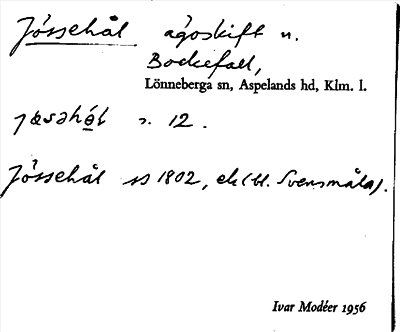 Jössehål ägoskift n.
Bockefall,
Lönneberga sn, Aspelands hd, Klm. l.
s. 12.
Jössehål 1802, ek (bl. Svensmåla).
Ivar Modéer 1956